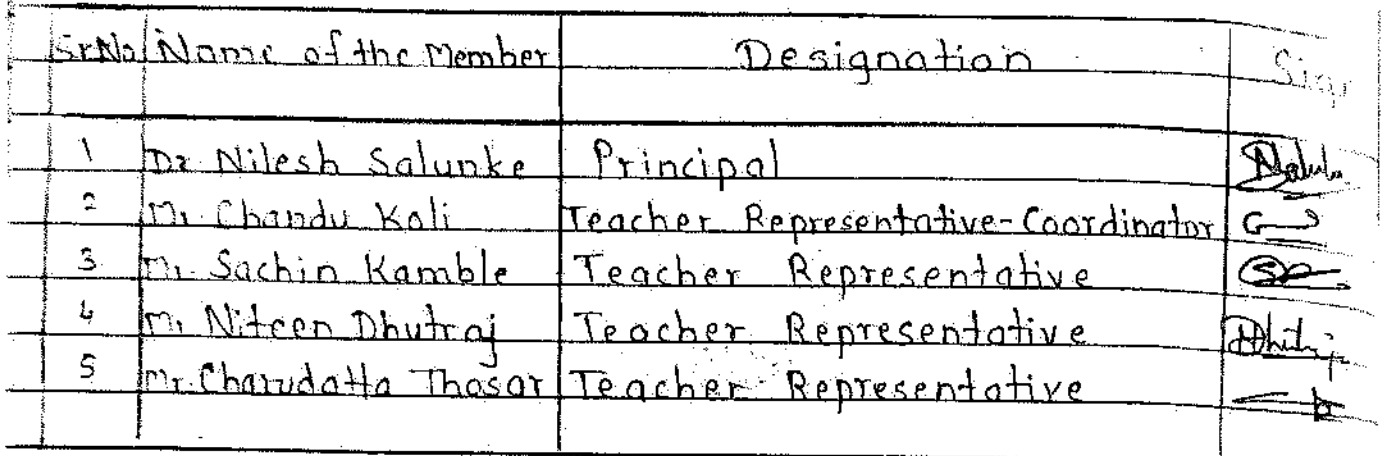 Sr.No Name of the Member Designation Sign
1 Dr. Nilesh Salunke Principal
2 Mr. Chandu Koli Teacher Representative-Coordinator
3 Mr. Sachin Kamble Teacher Representative
4 Mr. Niteen Dhutraj Teacher Representative
5 Mr. Charudatta Thosar Teacher Representative